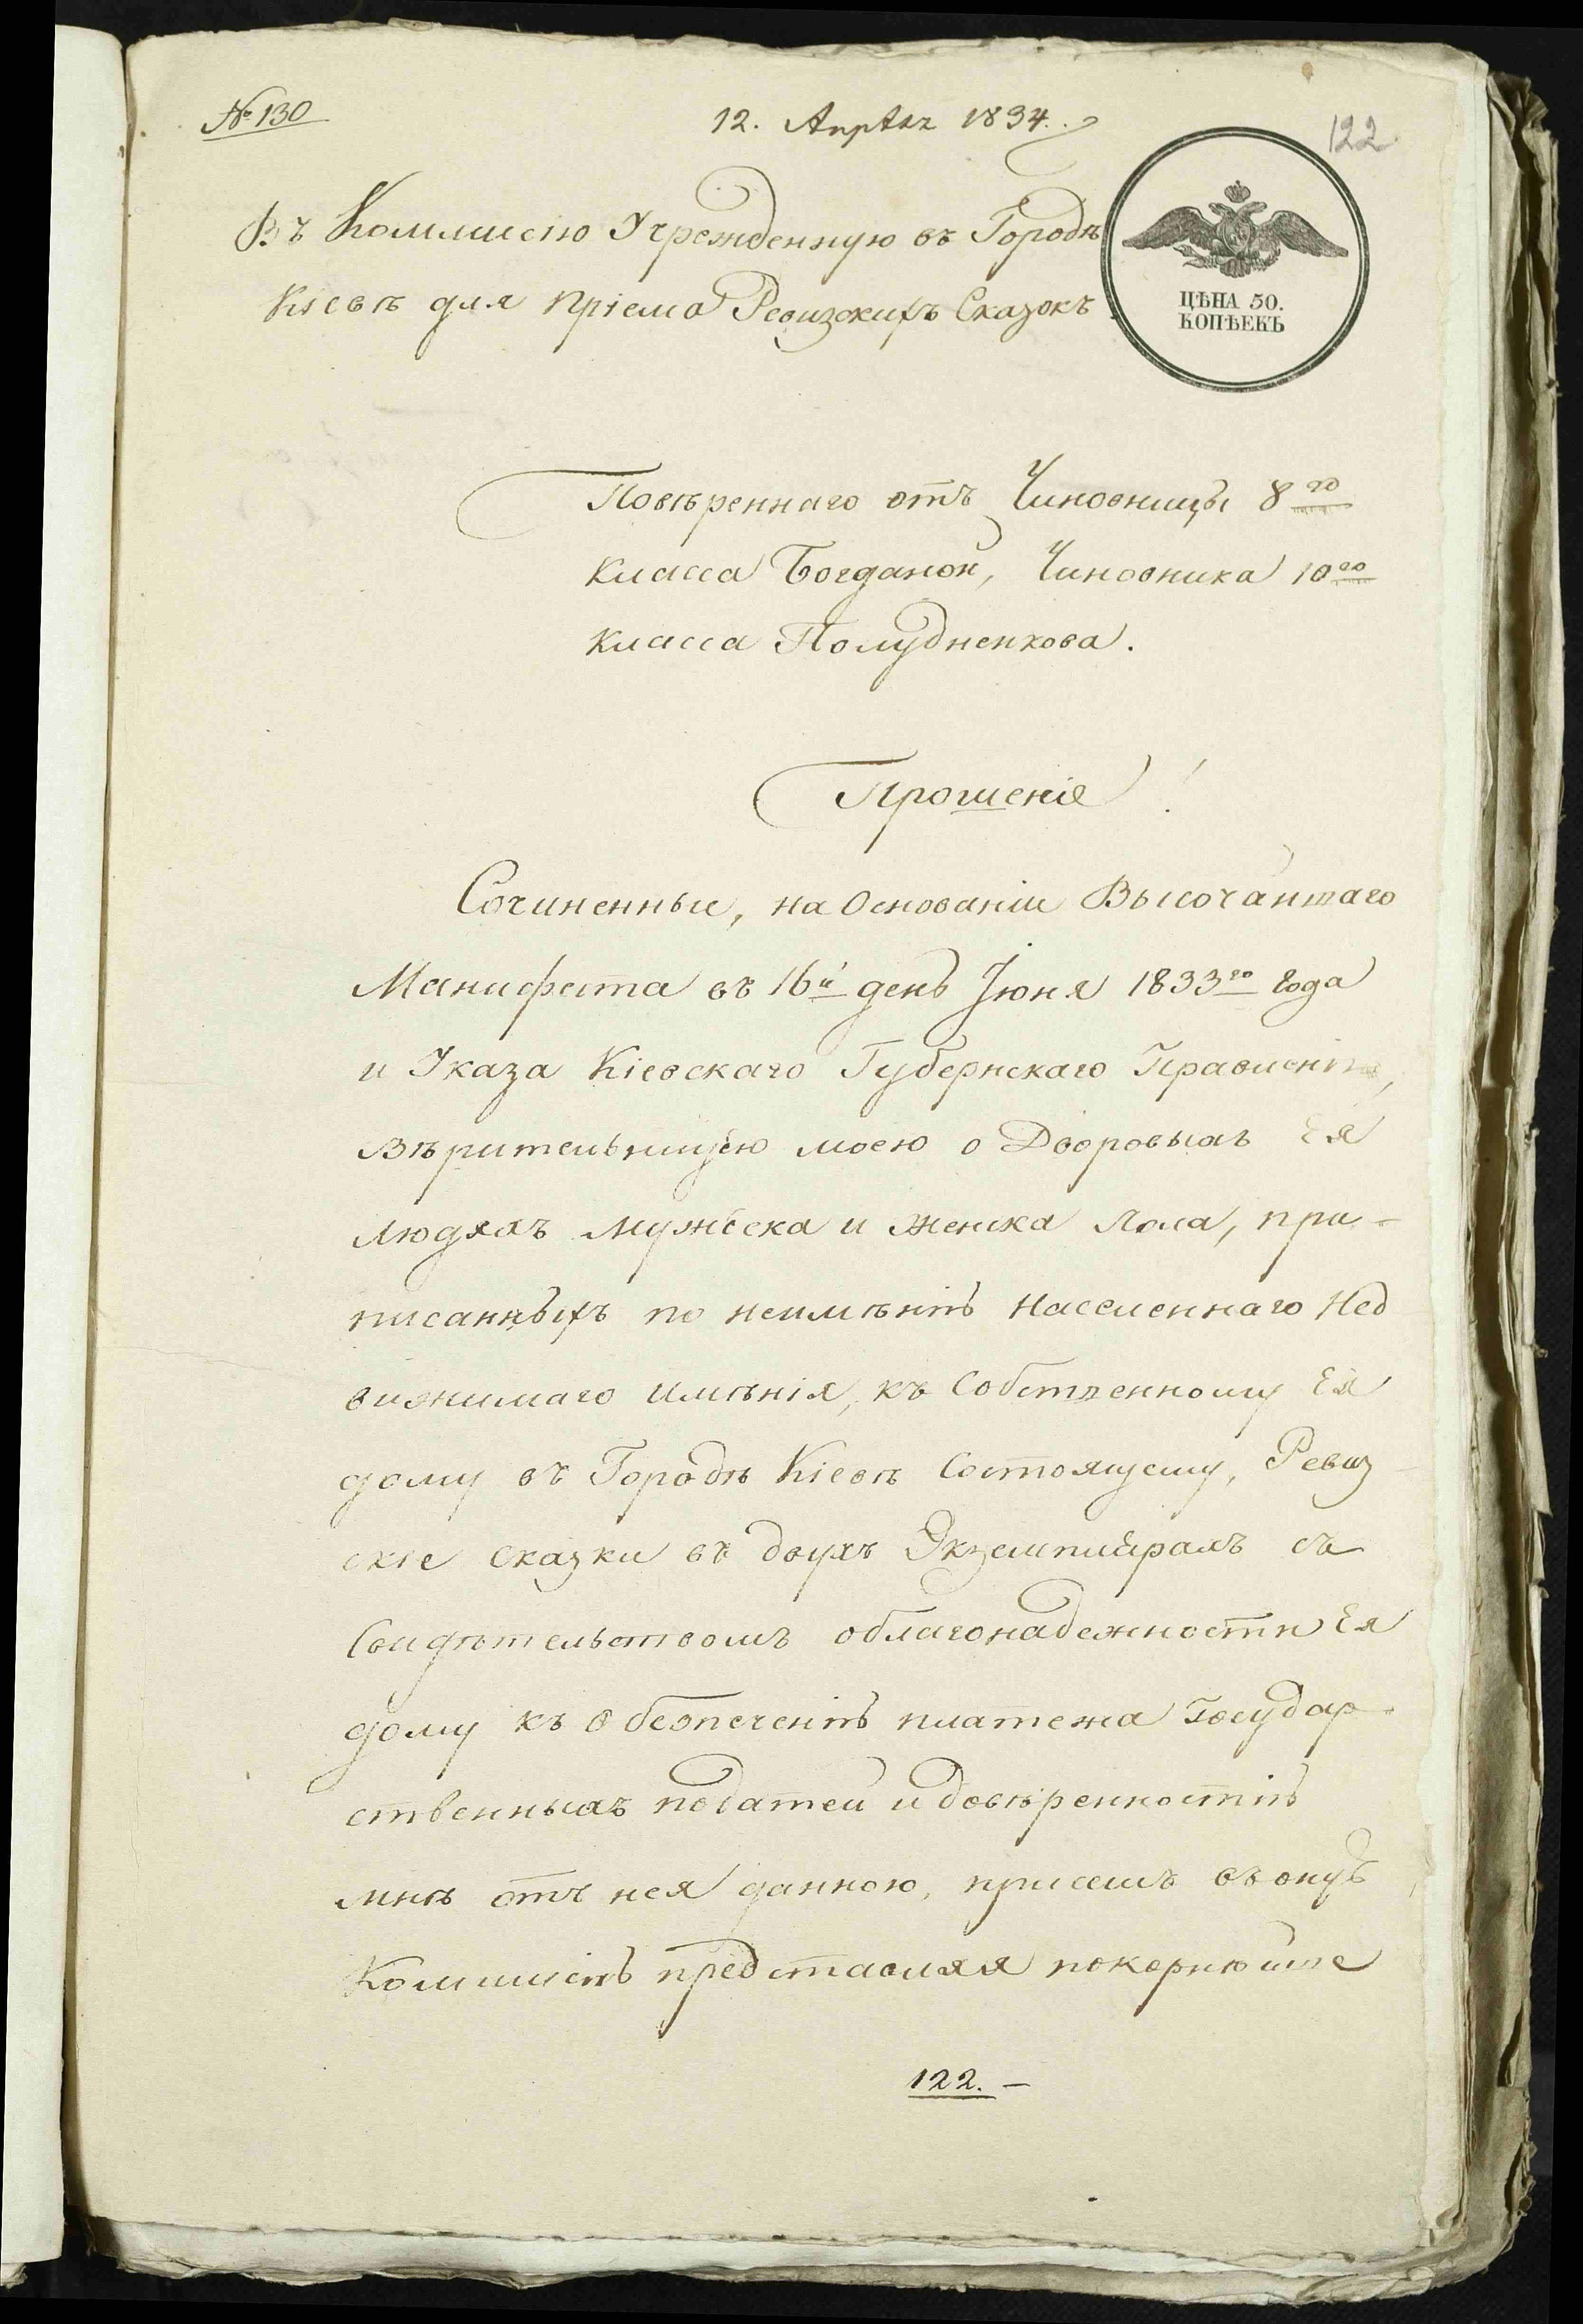 № 130
12. Апрѣля 1834.
122
Въ Коммисію Учрежденную въ Городѣ
Кіевѣ для пріема Ревизскихъ Сказокъ
ЦѢНА 50.
КОПѢЕКЪ
Повѣреннаго отъ Чиновницы 8го
класса Богданой, Чиновника 10го
класса Полудненкова.
Прошеніе!
Сочиненные, на Основаніи Высочайшаго
Манифеста въ 16й день Іюня 1833го Года
и Указа Кіевскаго Губернскаго Правленія,
Вѣрительницею моею о Дворовыхъ Ея
людяхъ мужеска и женска пола, при-
писанныхъ по неимѣнію Населеннаго Нед
вижимаго имѣнія, къ Собственному Ея
дому въ Городѣ Кіевѣ Состоящему, Ревиз
скіе Сказки въ двухъ Экземплярахъ съ
Свидѣтельствомъ облагонадежности Ея
дому къ Обезпеченію платежа Государ-
ственныхъ податей и довѣренностію
мнѣ отъ нея данною, присемъ въ оную
Коммисію представляя покорнюйше
122. -